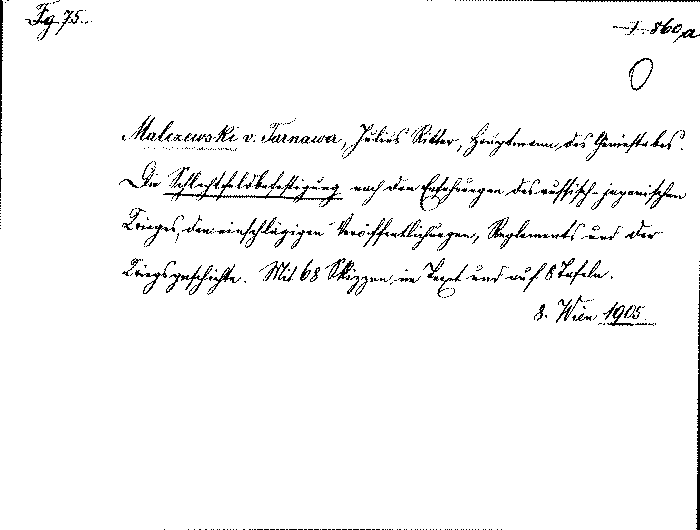 Fg 75.
I 860,a
Malczewski v. Tarnawa, Julius Ritter, Hauptmann des Geniestabes.
Die Schlachtfeldbefestigung nach den Erfahrungen des russisch-japanischen
Krieges, den einschlägigen Veröffentlichungen, Reglements und der
Kriegsgeschichte. Mit 68 Skizzen im Text und auf 8 Tafeln.
8. Wien 1905